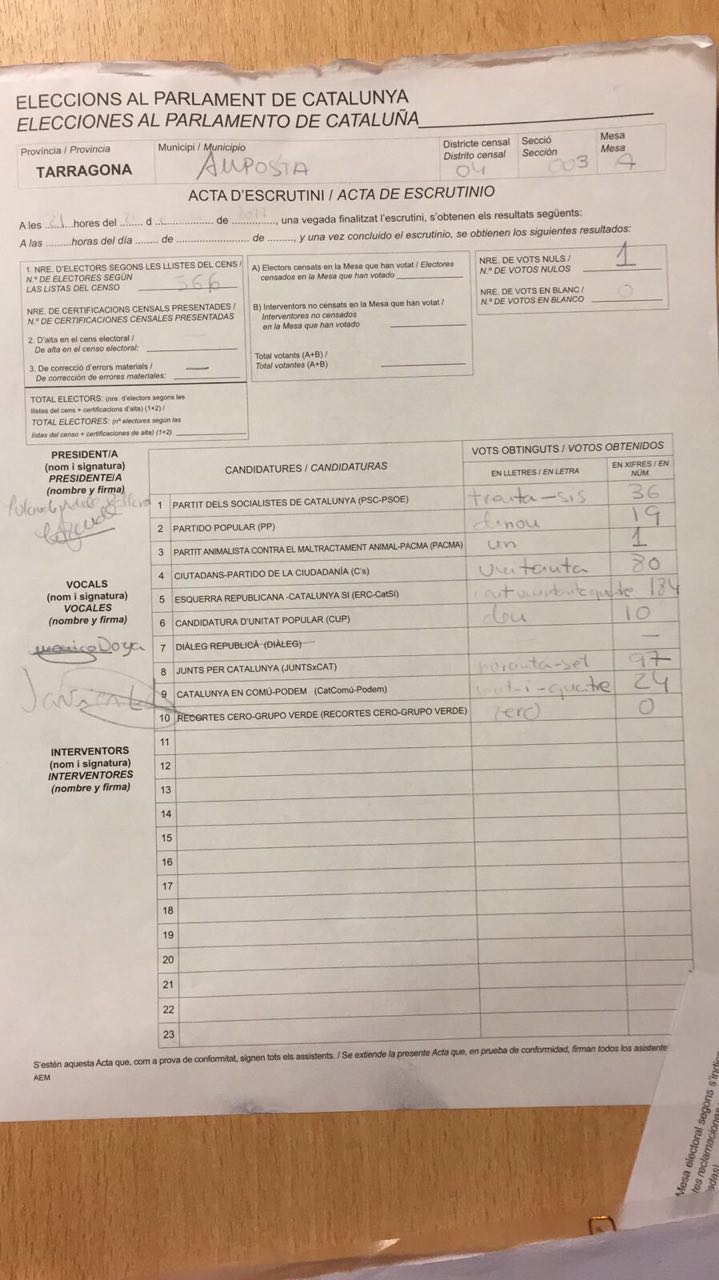 ELECCIONS AL PARLAMENT DE CATALUNYA
ELECCIONES AL PARLAMENTO DE CATALUÑA
Provincia / Provincia
TARRAGONA
Municipi / Municipio
AMPOSTA
Districte censal
Distrito censal
04
Secció
Sección
003
Mesa
Mesa
A
ACTA D'ESCRUTINI / ACTA DE ESCRUTINIO
A les 21 hores del d de 2017, una vegada finalitzat l'escrutini, s'obtenen els resultats següents:
A las horas del día de de , y una vez concluido el escrutinio, se obtienen los siguientes resultados:
1. NRE. D'ELECTORS SEGONS LES LLISTES DEL CENS /
N.º DE ELECTORES SEGÚN
LAS LISTAS DEL CENSO 566
NRE. DE CERTIFICACIONS CENSALS PRESENTADES /
N.º DE CERTIFICACIONES CENSALES PRESENTADAS
2. D'alta en el cens electoral /
De alta en el censo electoral:
3. De correcció d'errors materials /
De corrección de errores materiales: —
TOTAL ELECTORS: (nre. d'electors segons les
llistes del cens + certificacions d'alta) (1+2) /
TOTAL ELECTORES: (nº electores según las
listas del censo + certificaciones de alta) (1+2)
A) Electors censats en la Mesa que han votat / Electores
censados en la Mesa que han votado
B) Interventors no censats en la Mesa que han votat /
Interventores no censados
en la Mesa que han votado
Total votants (A+B) /
Total votantes (A+B)
NRE. DE VOTS NULS /
N.º DE VOTOS NULOS 1
NRE. DE VOTS EN BLANC /
N.º DE VOTOS EN BLANCO 0
PRESIDENT/A
(nom i signatura)
PRESIDENTE/A
(nombre y firma)
VOCALS
(nom i signatura)
VOCALES
(nombre y firma)
Doya
INTERVENTORS
(nom i signatura)
INTERVENTORES
(nombre y firma)
CANDIDATURES / CANDIDATURAS
VOTS OBTINGUTS / VOTOS OBTENIDOS
EN LLETRES / EN LETRA
EN XIFRES / EN NÚM.
1 PARTIT DELS SOCIALISTES DE CATALUNYA (PSC-PSOE) trenta-sis 36
2 PARTIDO POPULAR (PP) dinou 19
3 PARTIT ANIMALISTA CONTRA EL MALTRACTAMENT ANIMAL-PACMA (PACMA) un 1
4 CIUTADANS-PARTIDO DE LA CIUDADANÍA (C's) vuitanta 80
5 ESQUERRA REPUBLICANA -CATALUNYA SI (ERC-CatSí) 184
6 CANDIDATURA D'UNITAT POPULAR (CUP) deu 10
7 DIÀLEG REPUBLICÀ (DIÀLEG) —
8 JUNTS PER CATALUNYA (JUNTSxCAT) noranta-set 97
9 CATALUNYA EN COMÚ-PODEM (CatComú-Podem) vint-i-quatre 24
10 RECORTES CERO-GRUPO VERDE (RECORTES CERO-GRUPO VERDE) zero 0
11
12
13
14
15
16
17
18
19
20
21
22
23
S'estén aquesta Acta que, com a prova de conformitat, signen tots els assistents. / Se extiende la presente Acta que, en prueba de conformidad, firman todos los asistente
AEM
Mesa electoral segons s'indic
tes reclamacione